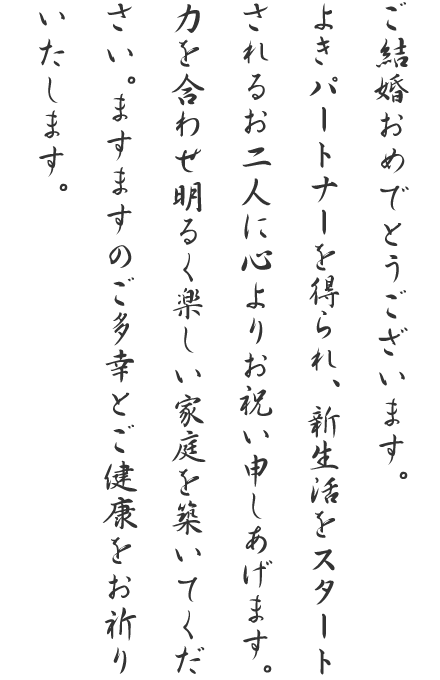 ご結婚おめでとうございます。
よきパートナーを得られ、新生活をスタート
されるお二人に心よりお祝い申しあげます。
力を合わせ明るく楽しい家庭を築いてくだ
さい。ますますのご多幸とご健康をお祈り
いたします。